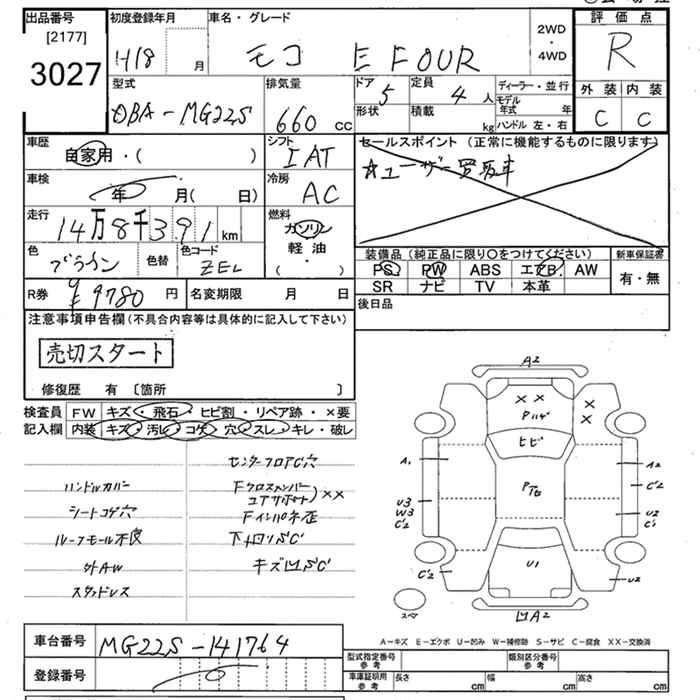 出品番号
[2177]
3027
初度登録年月
H18 月
車名・グレード
モコ E FOUR
2WD
・
4WD
評価点
R
外装 内装
C C
型式
DBA-MG22S
排気量
660 cc
ドア
5
定員
4 人
形状
積載
kg
ディーラー・並行
モデル
年式 年
ハンドル 左・右
車歴
自家用・( )
シフト
IAT
セールスポイント (正常に機能するものに限ります)
☆ユーザー買取車
車検
年 月( 日)
冷房
AC
走行
14万8千391km
燃料
ガソリン
軽・油
( ・ )
色
ブラウン
色替
色コード
ZEL
装備品 (純正品に限り〇をつけてください)
新車保証書
PS PW ABS エアB AW
SR ナビ TV 本革
有・無
R券
¥9780 円
名変期限 月 日
後日品
注意事項申告欄(不具合内容等は具体的に記入して下さい)
売切スタート
修復歴 有 〔箇所 〕
検査員
記入欄
FW キズ・飛石・ヒビ割・リペア跡・×要
内装 キズ・汚レ・コゲ・穴・スレ・キレ・破レ
センターフロアC穴
ハンドルカバー
Fクロスメンバー
コアサポート)××
シートコゲ穴
Fインパネ歪
ルーフモール不良
下廻りS'C'
外AW
キズ凹S'C'
スタッドレス
A2
××
Pハゲ
×
×
ヒビ
A1
A2
C'2
P右
U3
W3
C'2
U2
C'1
C'2
U1
U2
スペア
凹A2
A-キズ E-エクボ U-凹み W-補修跡 S-サビ C-腐食 XX-交換済
車台番号
MG22S-141764
登録番号
型式指定番号
参考
類別区分番号
参考
車庫証明用
参考
長さ cm
幅 cm
高さ cm